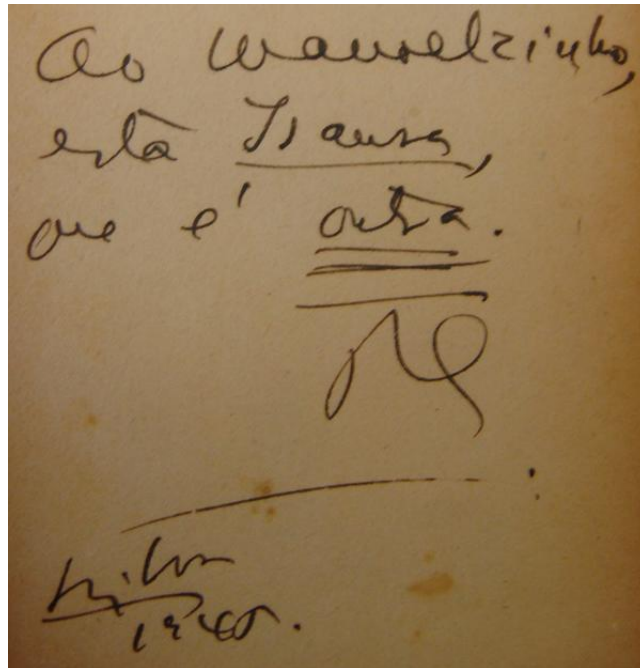 Ao Manuelzinho,
esta Isaura,
que é outra.
1945.